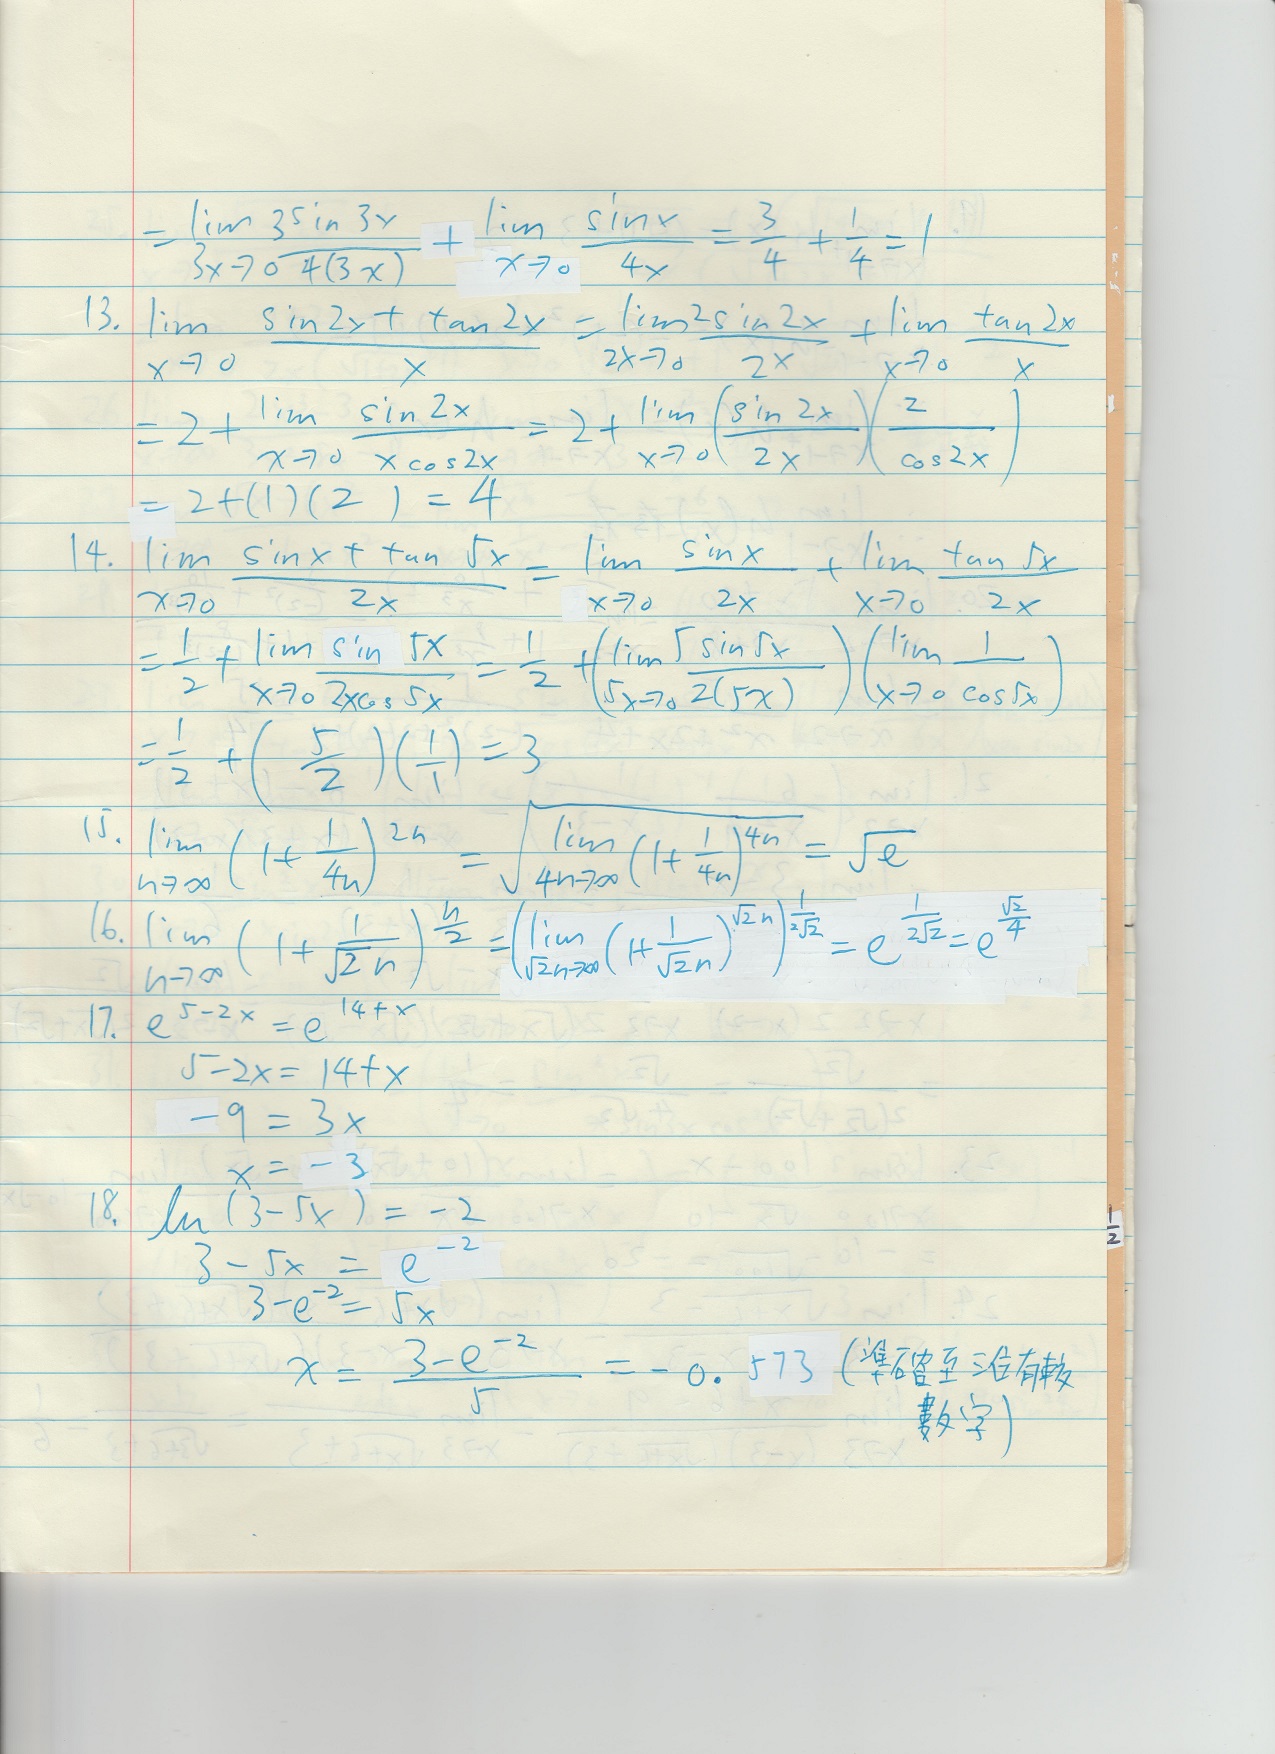 = lim 3x→0 3sin 3x / 4(3x) + lim x→0 sin x / 4x = 3/4 + 1/4 = 1
13. lim x→0 sin 2x + tan 2x / x = lim 2x→0 2sin 2x / 2x + lim x→0 tan 2x / x
= 2 + lim x→0 sin 2x / x cos 2x = 2 + lim x→0 (sin 2x / 2x)(2 / cos 2x)
= 2+(1)(2) = 4
14. lim x→0 sin x + tan 5x / 2x = lim x→0 sin x / 2x + lim x→0 tan 5x / 2x
= 1/2 + lim x→0 sin 5x / 2x cos 5x = 1/2 + (lim 5x→0 5 sin 5x / 2(5x))(lim x→0 1 / cos 5x)
= 1/2 + (5/2)(1/1) = 3
15. lim n→∞ (1 + 1/4n)^2n = √(lim 4n→∞ (1 + 1/4n)^4n) = √e
16. lim n→∞ (1 + 1/√2 n)^(n/2) = (lim √2n→∞ (1 + 1/√2n)^(√2n))^(1/2√2) = e^(1/2√2) = e^(√2/4)
17. e^(5-2x) = e^(14+x)
5-2x = 14+x
-9 = 3x
x = -3
18. ln (3-5x) = -2
3-5x = e^-2
3-e^-2 = 5x
x = 3-e^-2 / 5 = -0.573 (準確至三位有效
數字)
1/2